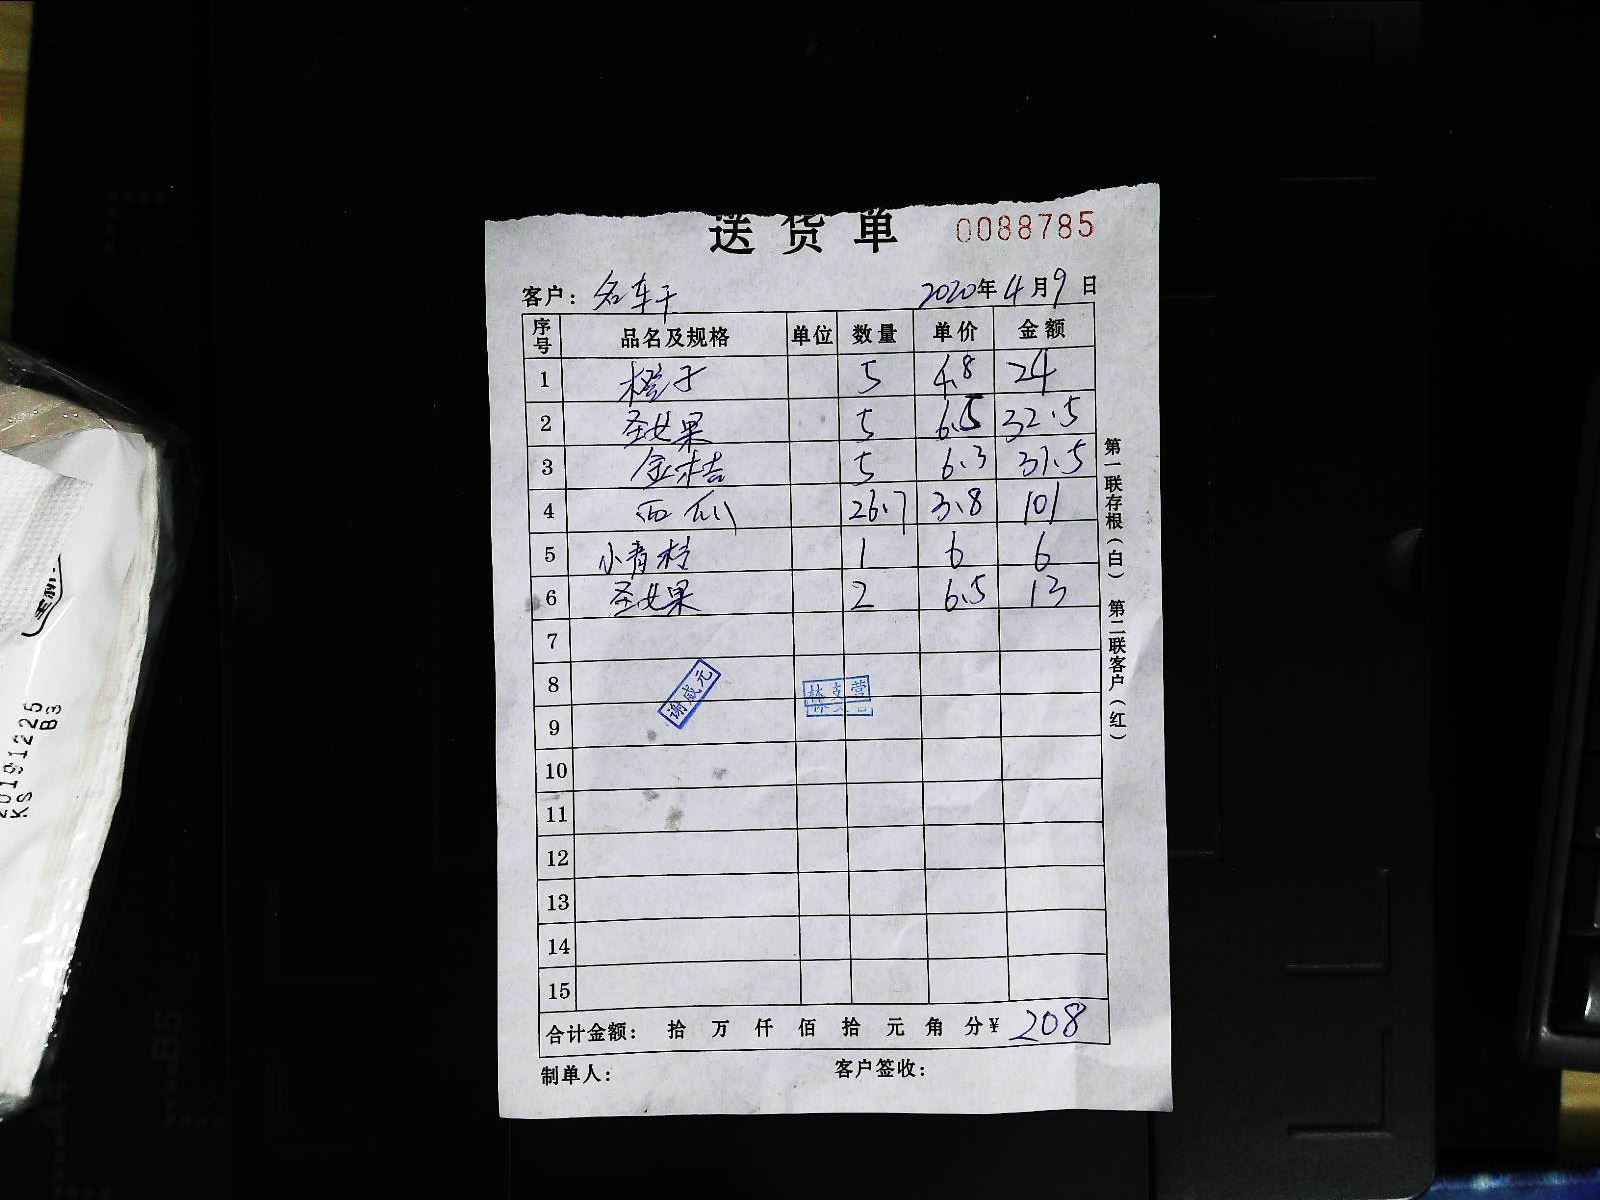 送货单 0088785
客户： 名车干 2020年4月9日
序号 品名及规格 单位 数量 单价 金额
1 橙子 5 4.8 24
2 圣女果 5 6.5 32.5
3 金桔 5 6.3 31.5
4 西瓜 26.7 3.8 101
5 小青柠 1 6 6
6 圣女果 2 6.5 13
7
8
9
谢成元
林支营
10
11
12
13
14
15
合计金额： 拾 万 仟 佰 拾 元 角 分￥ 208
制单人： 客户签收：
第一联存根（白） 第二联客户（红）
20191225
KS B3
B5